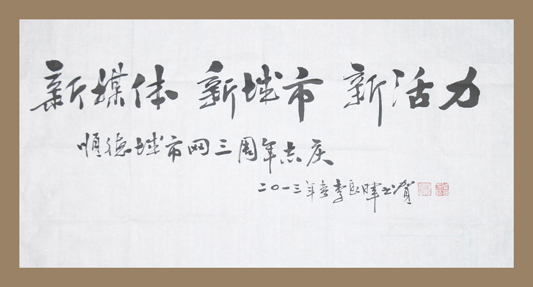 新媒体 新城市 新活力
顺德城市网三周年志庆
二〇一三年冬李良晖书贺